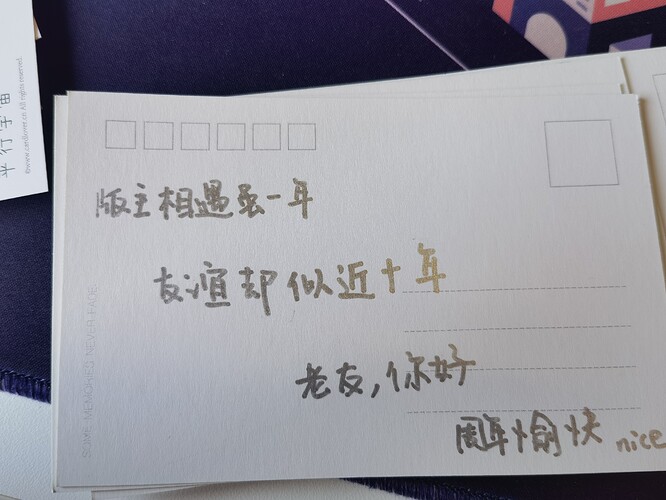 版主相遇虽一年
友谊却似近十年
老友，你好
周年愉快 nice
SOME MEMORIES NEVER FADE
平行宇宙